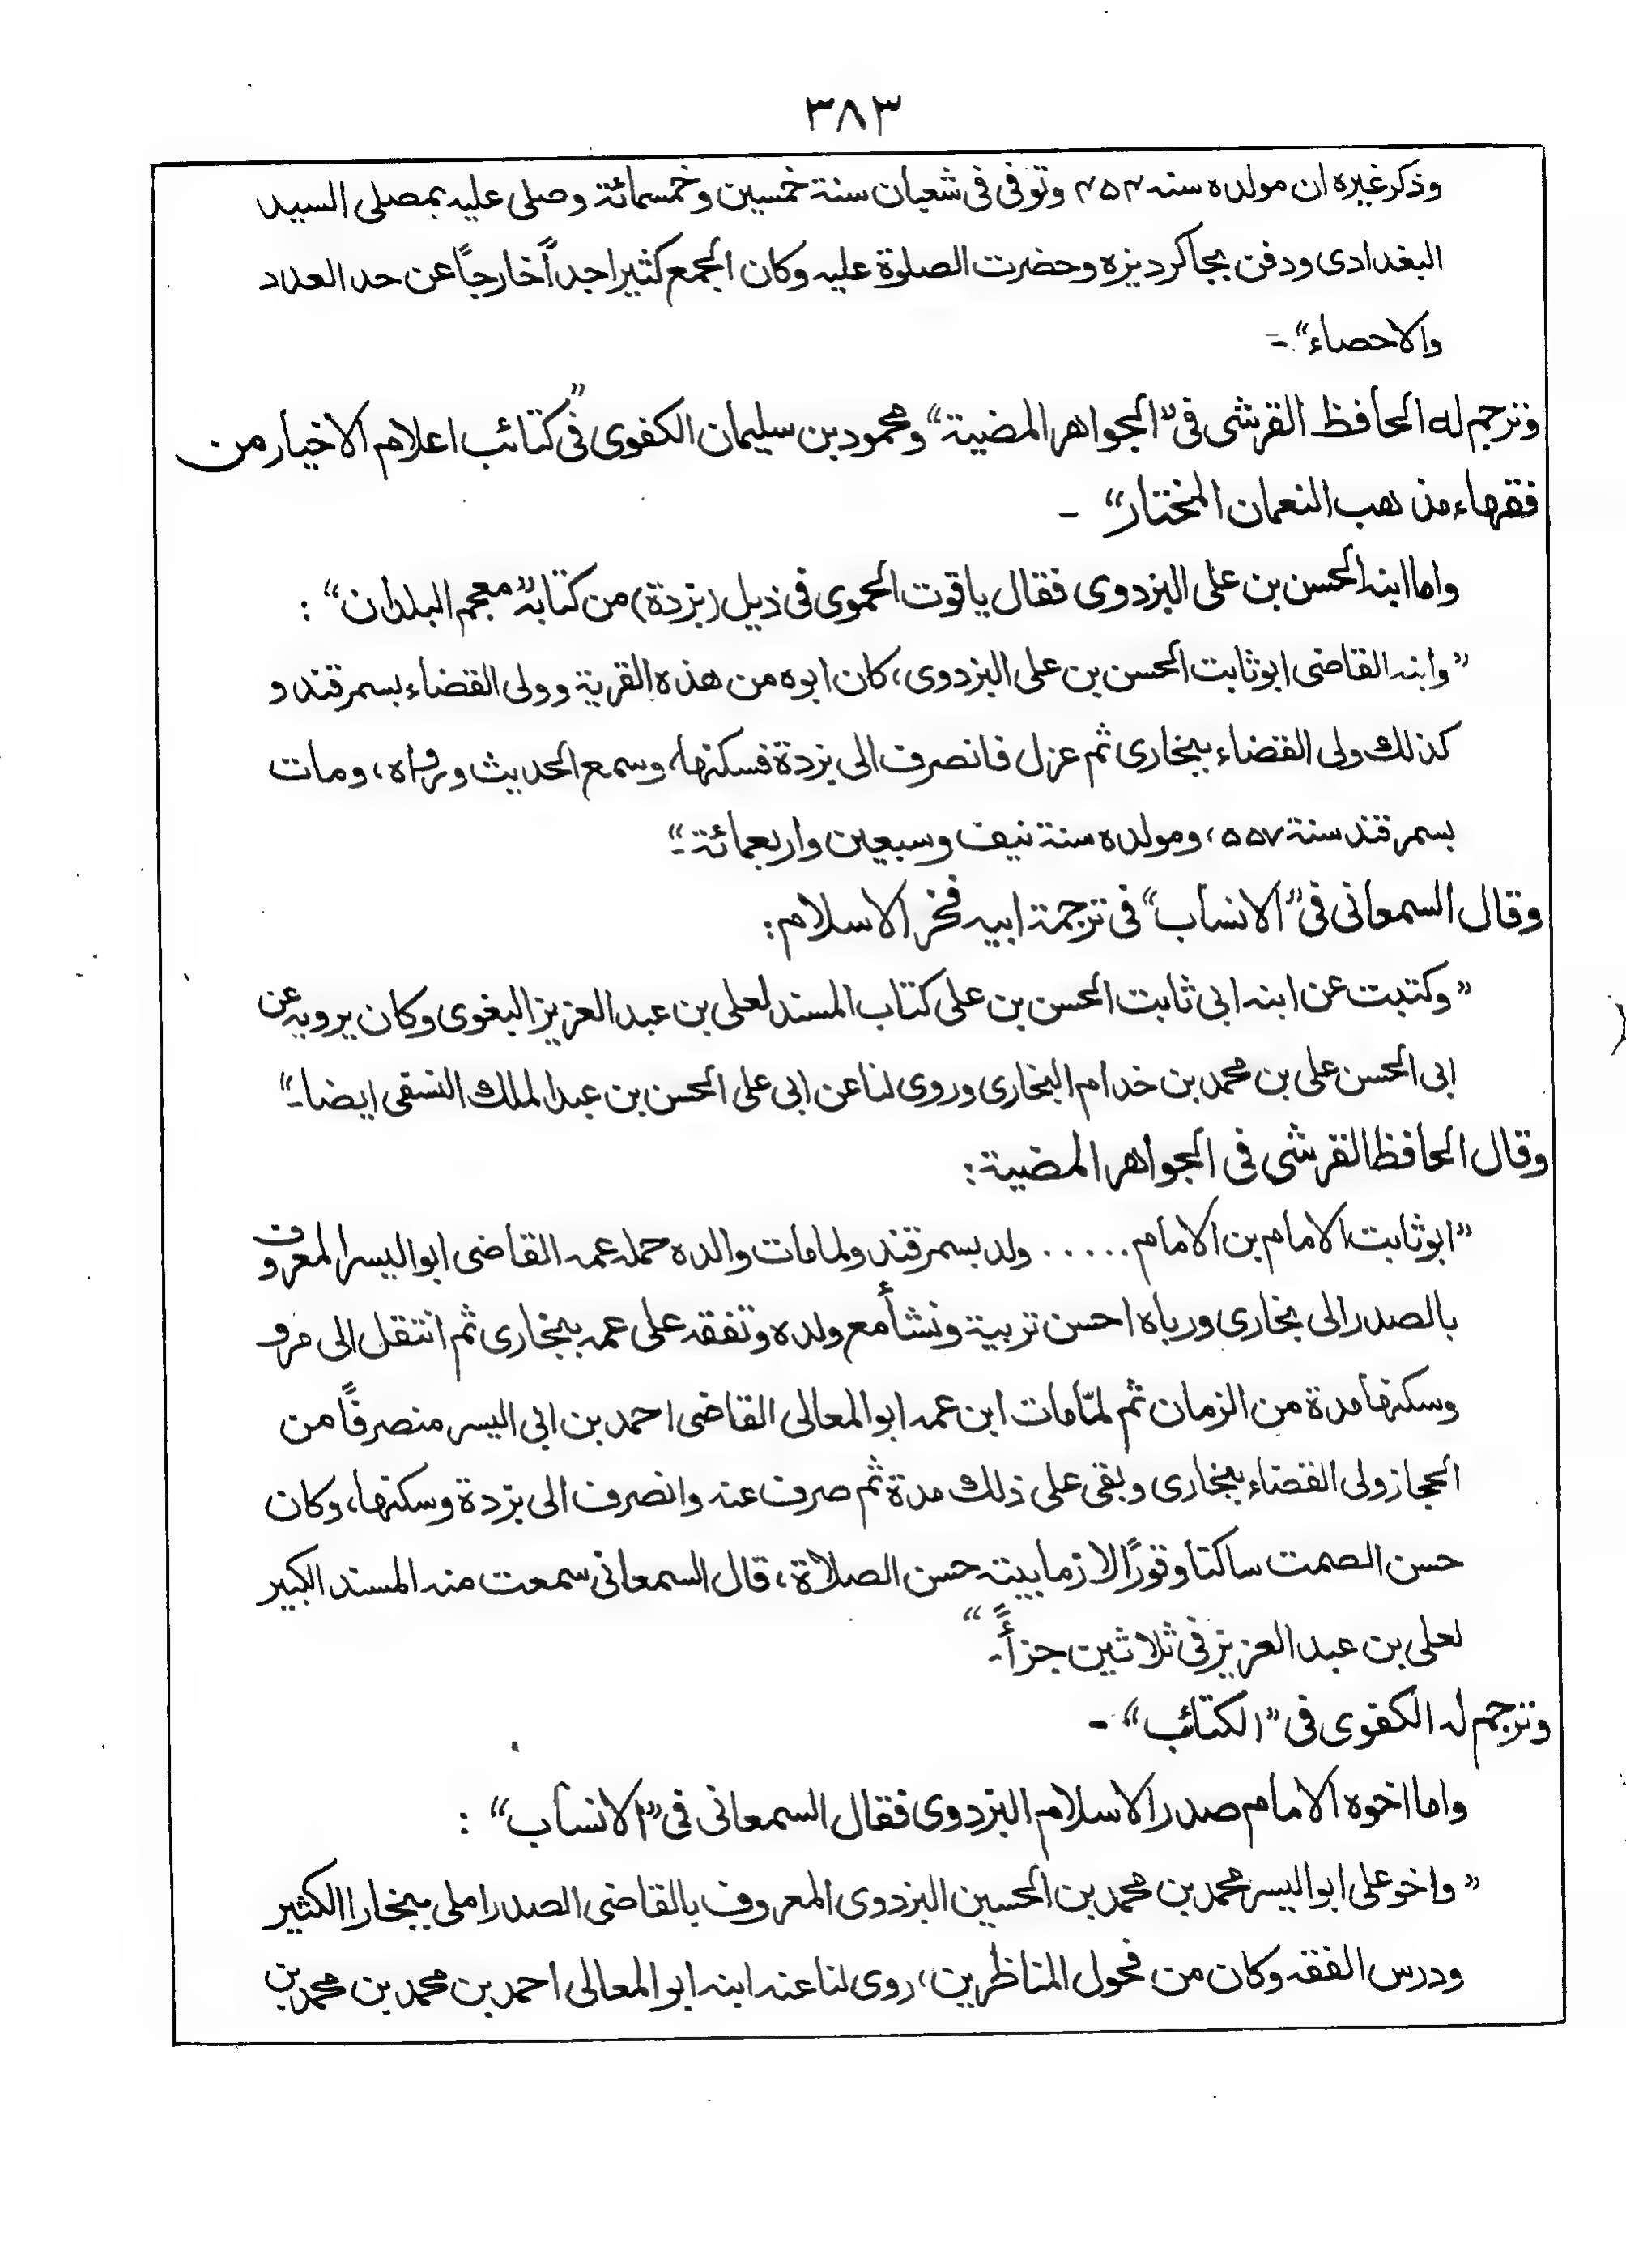 ٣٨٣
وذكر غيره ان مولده سنه ٤٥٤ وتوفى فى شعبان سنة خمسين وخمسمائة وصلى عليه بمصلى السيد
البغدادى ودفن بجاكرديزه وحضرت الصلوة عليه وكان الجمع كثيرا جداً خارجاً عن حد العدد
والاحصاء“ ـ
وترجم له الحافظ القرشى فى ”الجواهر المضية“ ومحمود بن سليمان الكفوى فى ”كتائب اعلام الاخيار من
فقهاء مذهب النعمان المختار“ ـ
واما ابنه الحسن بن على البزدوى فقال ياقوت الحموى فى ذيل (بزدة) من كتابه ”معجم البلدان“ :
”وابنه القاضى ابوثابت الحسن بن على البزدوى، كان ابوه من هذه القرية وولى القضاء بسمرقند و
كذلك ولى القضاء ببخارى ثم عزل فانصرف الى بزدة فسكنها، وسمع الحديث ورواه، ومات
بسمرقند سنة ٥٥٧، ومولده سنة نيف وسبعين واربعمائة ـ“
وقال السمعانى فى ”الانساب“ فى ترجمة ابيه فخر الاسلام:
”وكتبت عن ابنه ابى ثابت الحسن بن على كتاب المسند لعلى بن عبد العزيز البغوى وكان يرويه عن
ابى الحسن على بن محمد بن خدام البخارى وروى لنا عن ابى على الحسن بن عبد الملك النسقى ايضا ـ“
وقال الحافظ القرشى فى الجواهر المضية:
”ابوثابت الامام بن الامام ...... ولد بسمرقند ولما مات والده حمله عمه القاضى ابواليسر المعروف
بالصدر الى بخارى ورباه احسن تربية ونشأ مع ولده وتفقه على عمه ببخارى ثم انتقل الى مرو
وسكنها مدة من الزمان ثم لمّا مات ابن عمه ابوالمعالى القاضى احمد بن ابى اليسر منصرفاً من
الحجاز ولى القضاء ببخارى وبقى على ذلك مدة ثم صرف عنه وانصرف الى بزدة وسكنها، وكان
حسن الصمت ساكتا وقورًا لازما بيته حسن الصلاة، قال السمعانى سمعت منه المسند الكبير
لعلى بن عبد العزيز فى ثلاثين جزأً ـ“
وترجم له الكفوى فى ”الكتائب“ ـ
واما اخوه الامام صدر الاسلام البزدوى فقال السمعانى فى ”الانساب“ :
”واخو على ابواليسر محمد بن محمد بن الحسين البزدوى المعروف بالقاضى الصدر املى ببخارا الكثير
ودرس الفقه وكان من فحول المناظرين، روى لنا عنه ابنه ابوالمعالى احمد بن محمد بن محمد بن